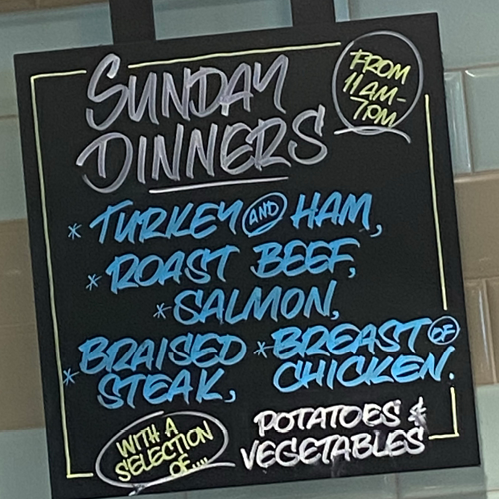 SUNDAY
DINNERS
FROM
11AM-
7PM
* TURKEY AND HAM,
* ROAST BEEF,
* SALMON,
* BRAISED
STEAK,
* BREAST OF
CHICKEN.
WITH A
SELECTION
OF....
POTATOES &
VEGETABLES